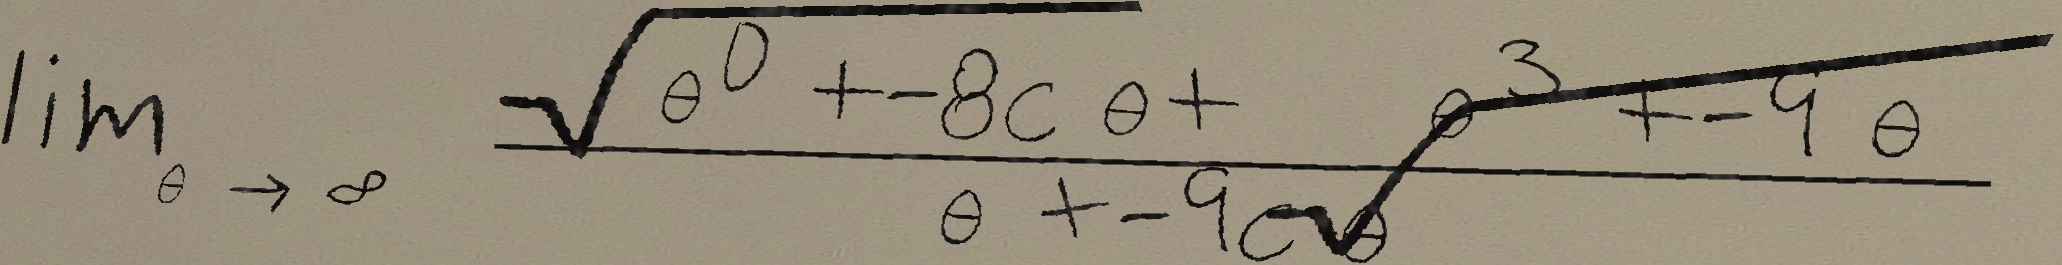 \lim_{\theta \to \infty} \frac{\sqrt{\theta^0 + -8c\theta} + \sqrt{\theta^3 + -9\theta}}{\theta + -9c\theta}